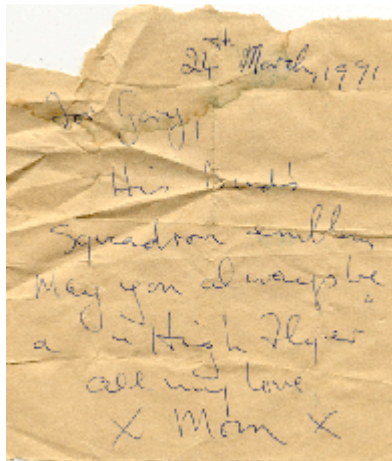 24th March, 1991
For Gary,
His Dad's
Squadron emblem
May you always be
a "High Flyer"
all my love,
X Mom X